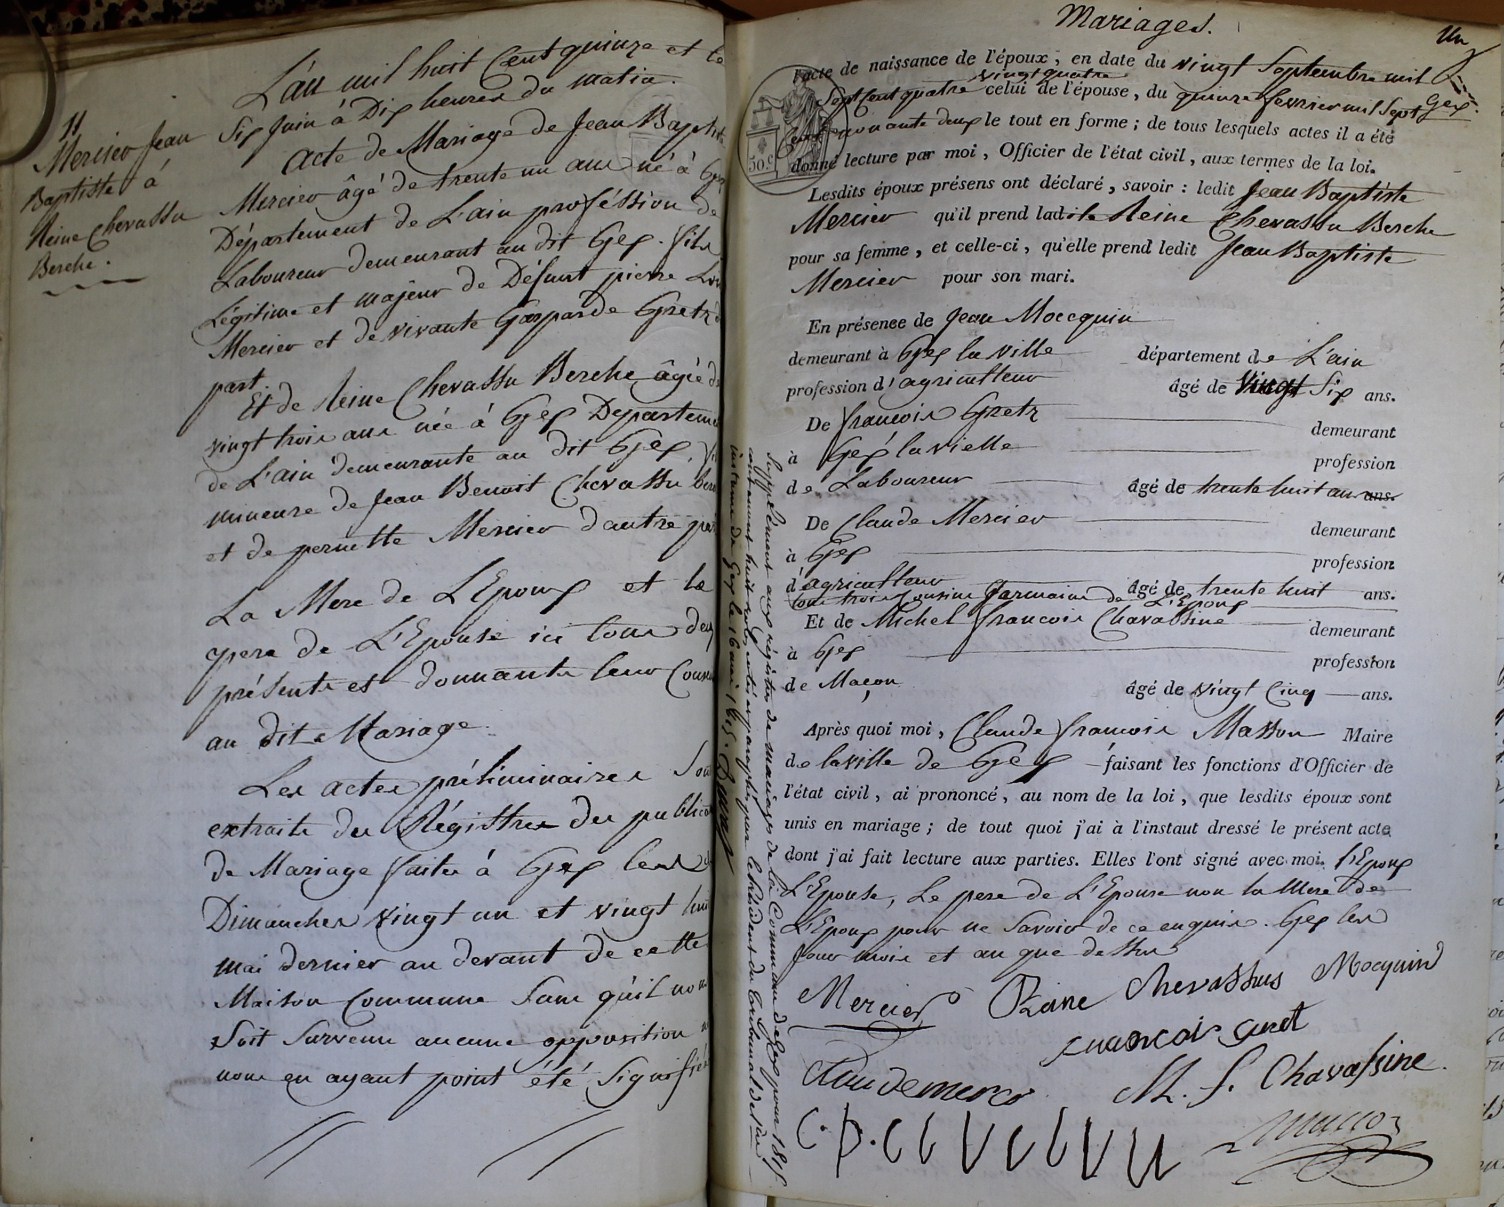 11
Mercier Jean
Baptiste à
Reine Chevassu
Berche.
L'an mil huit Cent quinze et le
Six Juin à Dix heures du matin.
Acte de Mariage de Jean Baptiste
Mercier âgé de trente un ans né à Gex
Département de L'ain proféssion de
Laboureur demeurant au dit Gex. fils
Légitime et majeur de Défunt pierre
Mercier et de vivante Gasparde Gretz
part.
Et de Reine Chevassu Berche âgée de
vingt trois ans née à Gex Departeme
de L'ain demeurante au dit Gex,
mineure de Jean Benoit Chevassu
et de pernette Mercier d'autre
La Mere de L'Epoux et le
pere de L'Epouse ici tous deux
présents et donnants leur Cons
au dit Mariage.
Les actes préliminaires sont
extraits des Régistres des publicat
de Mariage faites à Gex les
Dimanches vingt un et vingt huit
mai dernier au devant de cette
Maison Commune sans qu'il nous
Soit Survenu aucune opposition
nous en ayant point été Signifié
Supplément aux régistres de mariage de la Commune de Gex pour 1815.
contenant huit cotés et paraphés par le Président du tribunal de 1ère
instance de Gex le 16 mai 1815.
Mariages.
Un
Gex.
l'acte de naissance de l'époux, en date du vingt Septembre mil
vingt quatre
Sept Cent quatre celui de l'épouse, du quinze fevrier mil Sept
Cent nonante deux le tout en forme ; de tous lesquels actes il a été
donné lecture par moi, Officier de l'état civil, aux termes de la loi.
50c
Lesdits époux présens ont déclaré, savoir : ledit Jean Baptiste
Mercier qu'il prend ladite Reine Chevassu Berche
pour sa femme, et celle-ci, qu'elle prend ledit Jean Baptiste
Mercier pour son mari.
En présence de Jean Moccquin
demeurant à Gex la ville département de L'ain
profession d'agriculteur âgé de Vingt Six ans.
De francois Gretz demeurant
à Gex la vielle profession
de Laboureur âgé de trente huit an ans.
De Claude Mercier demeurant
à Gex profession
d'agriculteur âgé de trente huit ans.
tous trois Cousins Germains de L'Epoux
Et de Michel francois Chavassine demeurant
à Gex profession
de Maçon âgé de vingt Cinq ans.
Après quoi moi, Claude francois Masson Maire
de la ville de Gex faisant les fonctions d'Officier de
l'état civil, ai prononcé, au nom de la loi, que lesdits époux sont
unis en mariage ; de tout quoi j'ai à l'instaut dressé le présent acte
dont j'ai fait lecture aux parties. Elles l'ont signé avec moi. L'Epoux
L'Epouse, Le pere de L'Epouse non la Mere de
L'Epoux pour ne Savoir de ce enquis. Gex les
Jour mois et an que dessus
Mercier Reine Chevassus Mocquin
francois guret
Claude merco M. f. Chavassine.
Masson